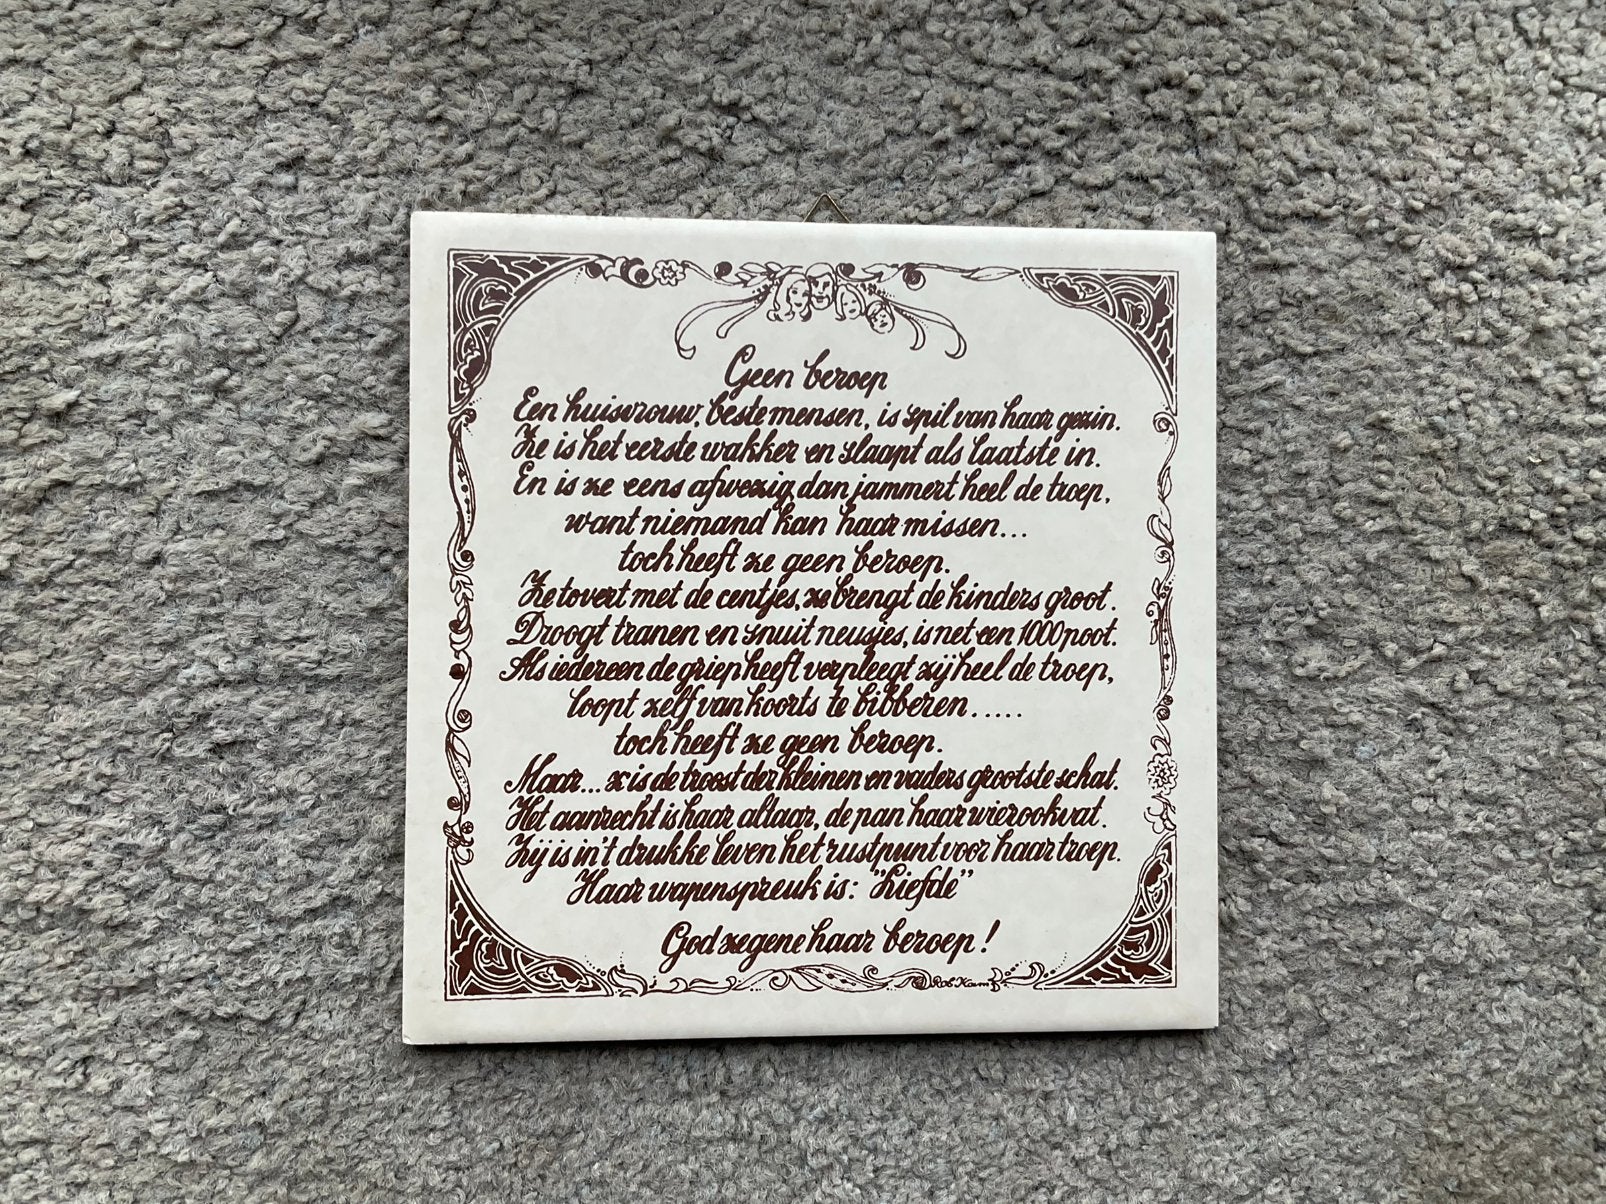 Geen beroep
Een huisvrouw, beste mensen, is spil van haar gezin.
Ze is het eerste wakker en slaapt als laatste in.
En is ze eens afwezig dan jammert heel de troep,
want niemand kan haar missen...
toch heeft ze geen beroep.
Ze tovert met de centjes, ze brengt de kinders groot.
Droogt tranen en snuit neusjes, is net een 1000poot.
Als iedereen de griep heeft verpleegt zij heel de troep,
loopt zelf van koorts te bibberen.....
toch heeft ze geen beroep.
Maar... z is de troost der kleinen en vaders grootste schat.
Het aanrecht is haar altaar, de pan haar wierookvat.
Zij is in 't drukke leven het rustpunt voor haar troep.
Haar wapenspreuk is: "Liefde"
God zegene haar beroep!
© Rob